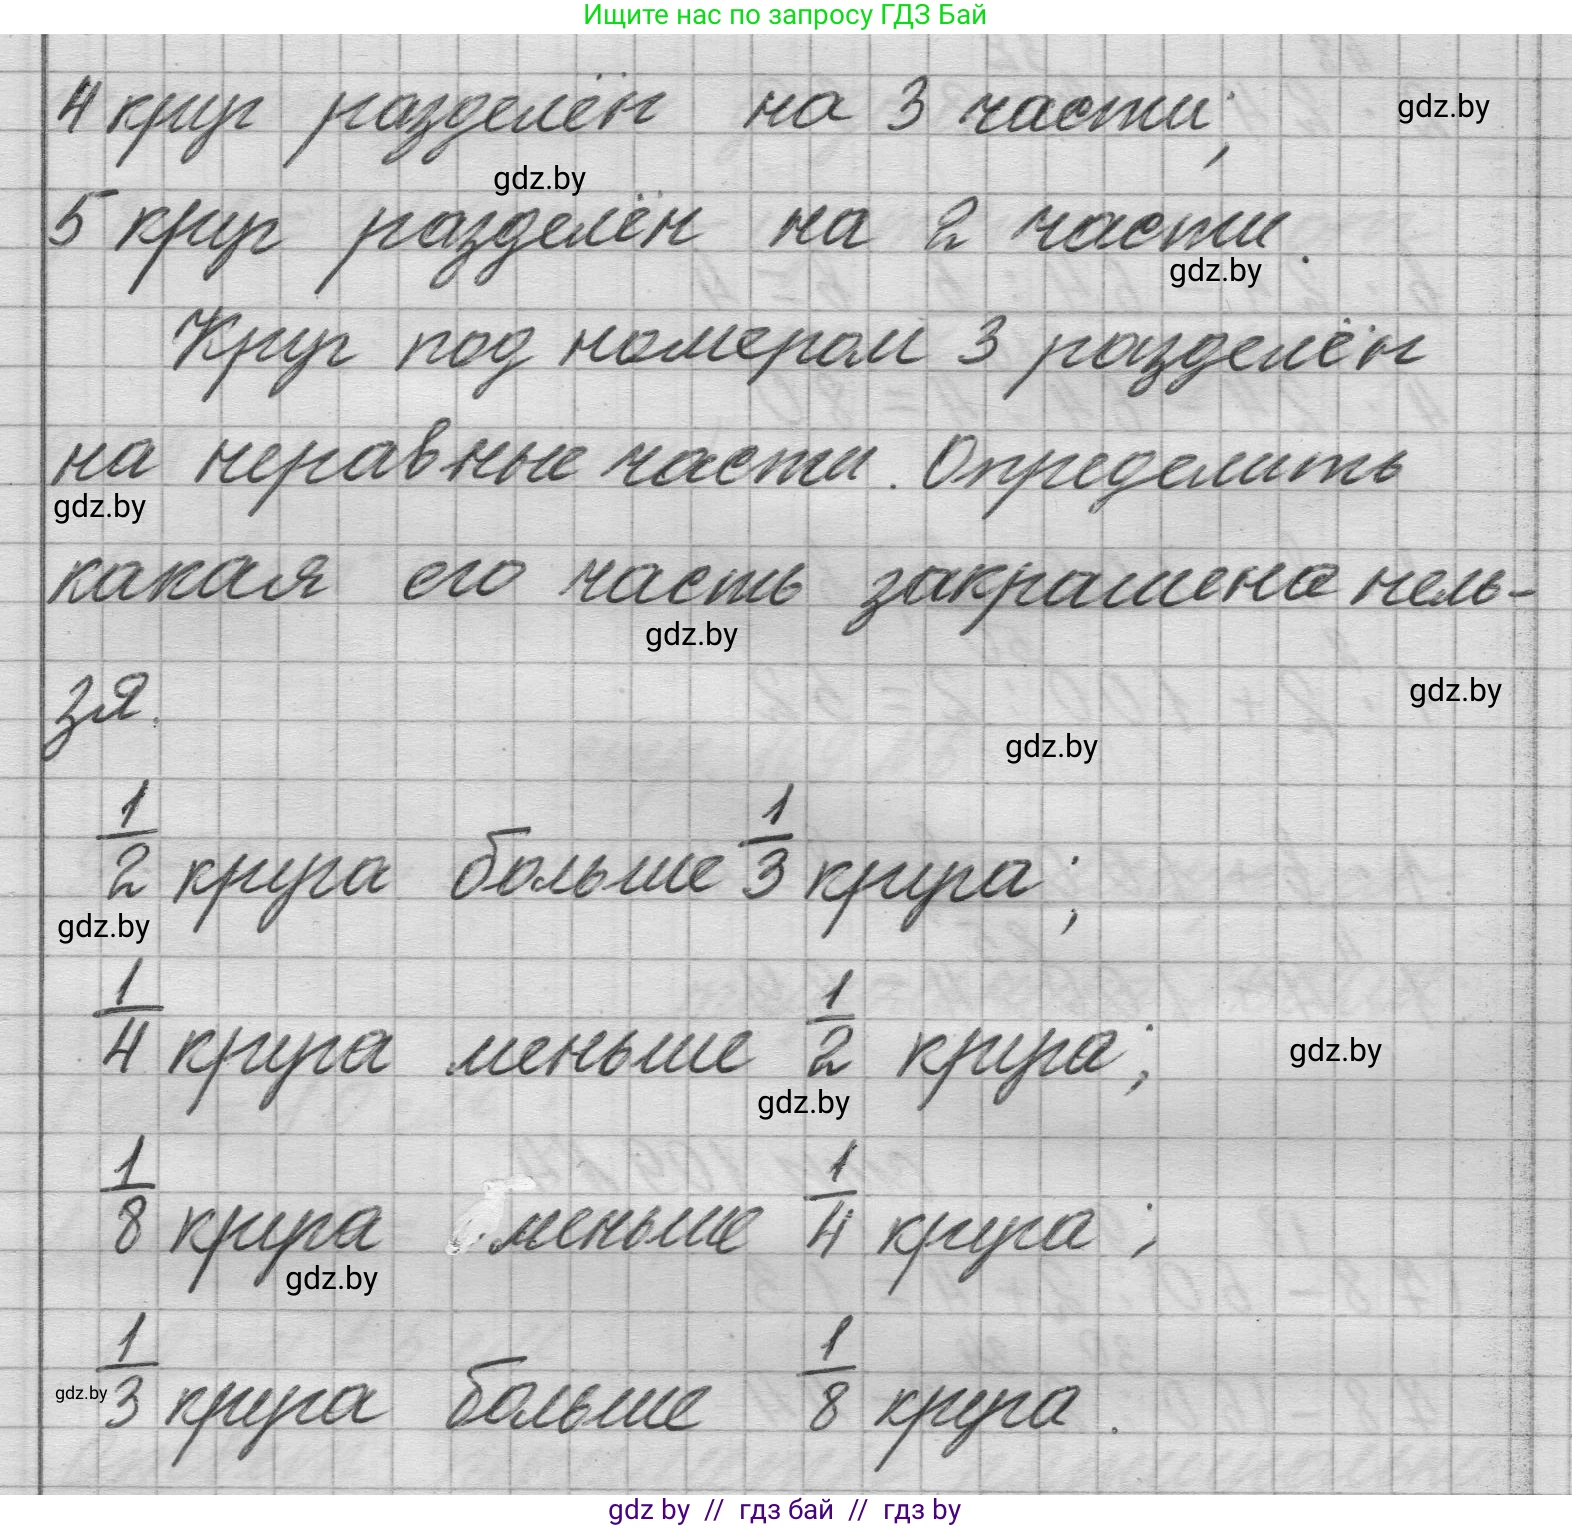 Ищите нас по запросу ГДЗ Бай
4 круг разделён на 3 части;
gdz.by
gdz.by
5 круг разделён на 2 части.
gdz.by
Круг под номером 3 разделён
на неравные части. Определить
gdz.by
какая его часть закрашена нель-
gdz.by
зя.
gdz.by
gdz.by
1/2 круга больше 1/3 круга;
gdz.by
1/4 круга меньше 1/2 круга;
gdz.by
gdz.by
1/8 круга меньше 1/4 круга;
gdz.by
1/3 круга больше 1/8 круга.
gdz.by
gdz by // гдз бай // гдз by